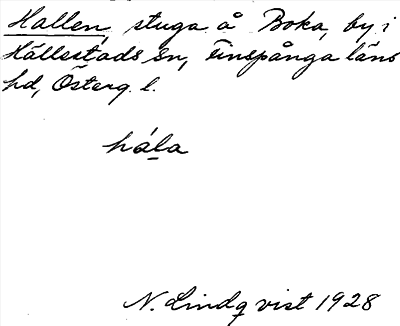 Hallen, stuga å Boka, by i
Hällestads sn, Finspånga läns
hd, Österg. l.
hála
N. Lindqvist 1928